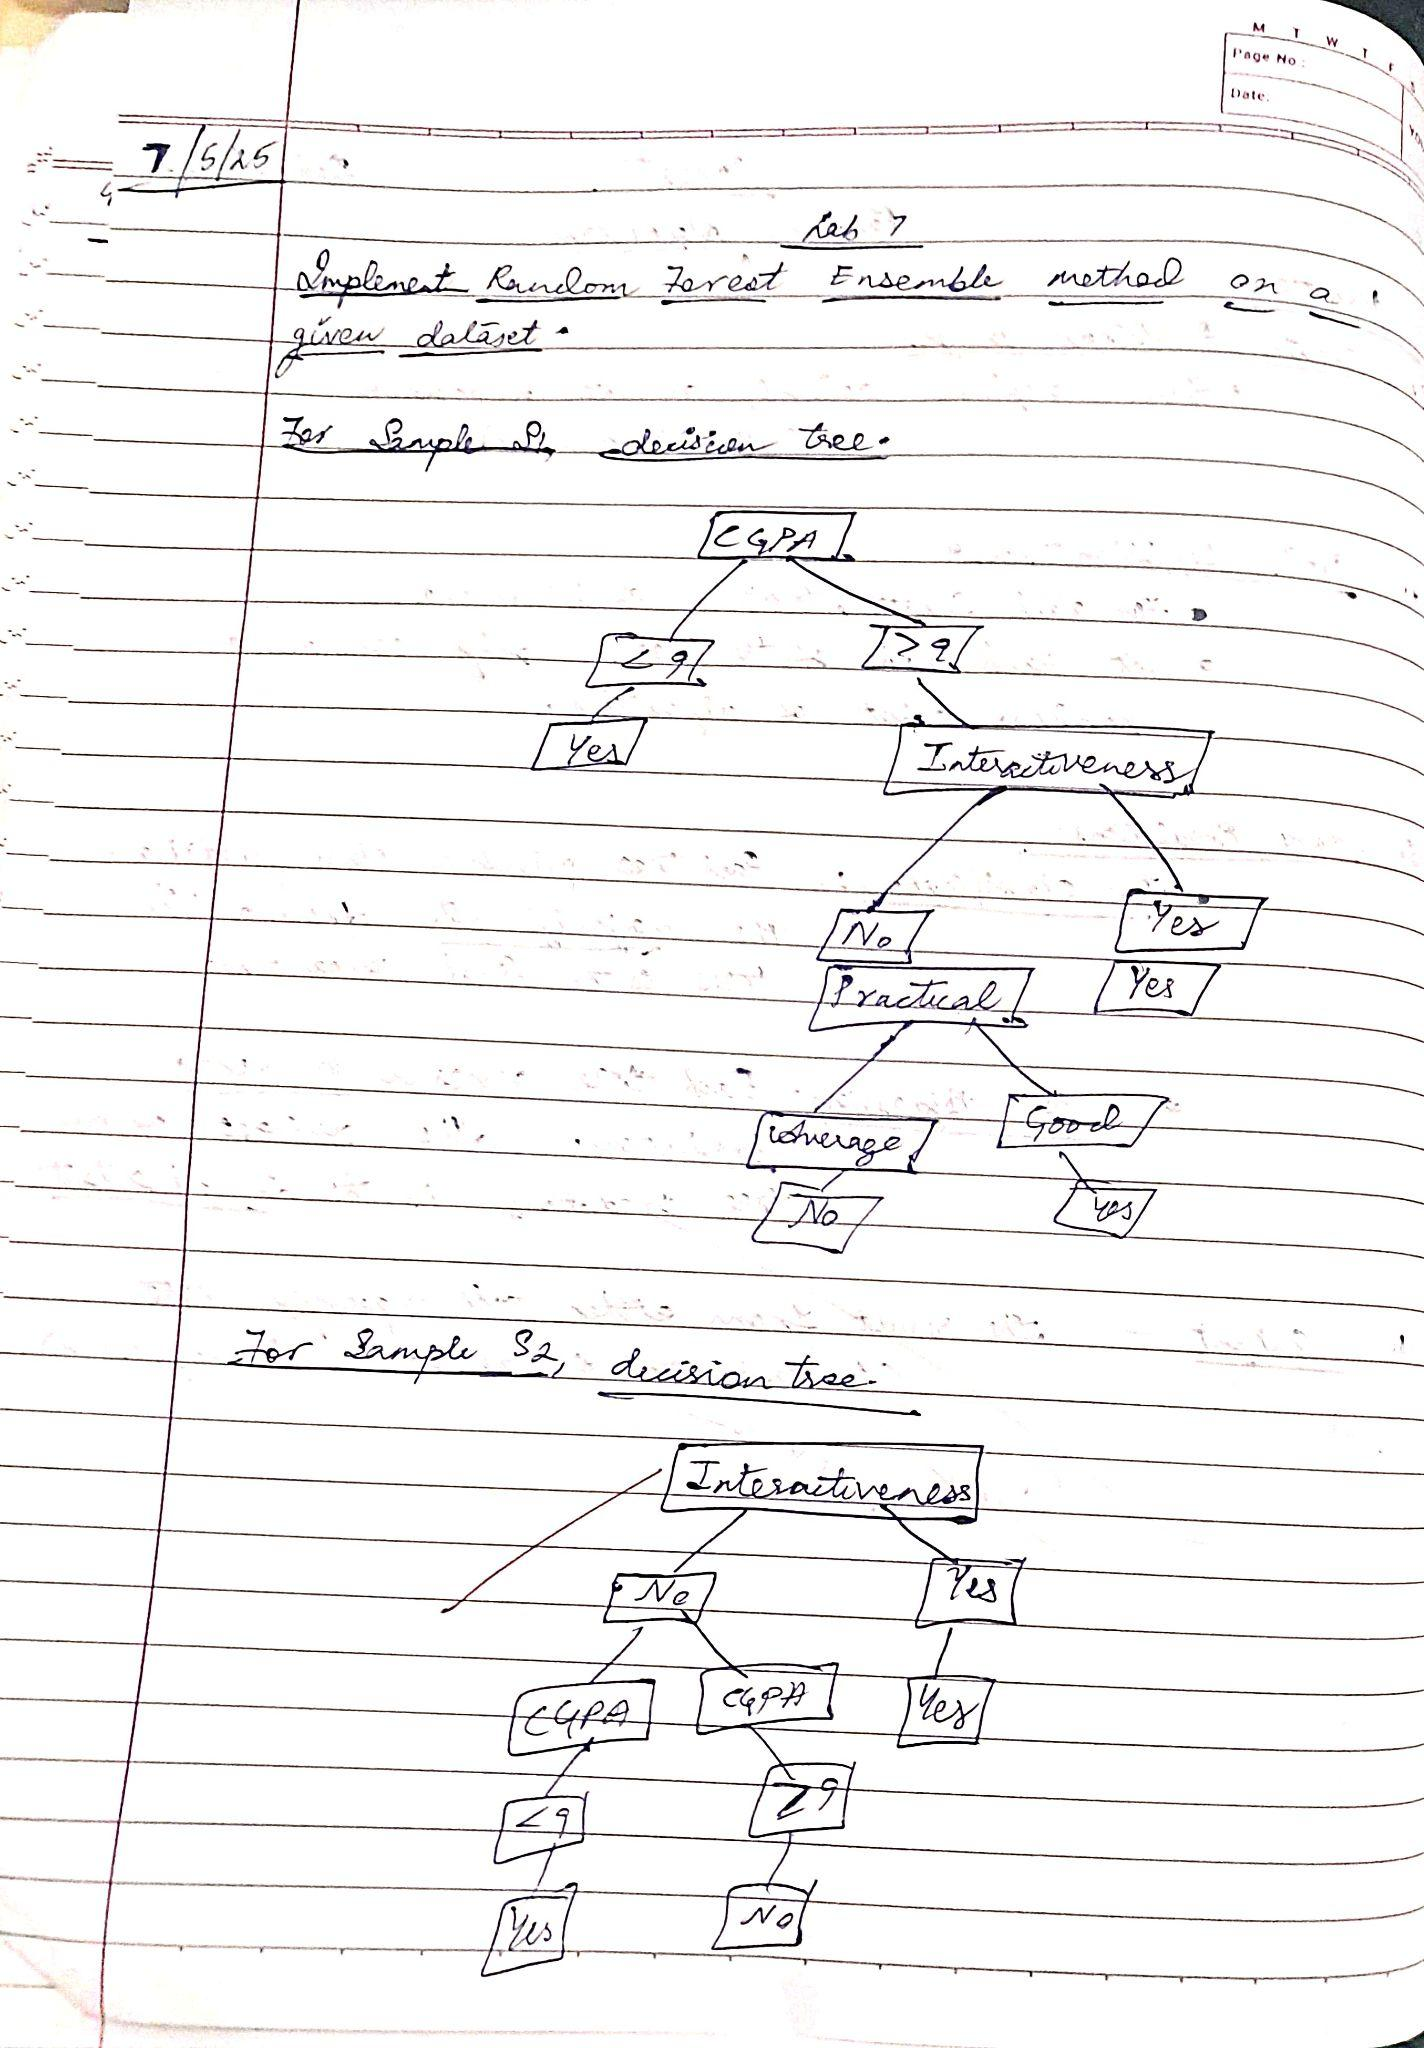 M T W T F S
Page No.:
Date:
7/5/25
Lab 7
Implement Random Forest Ensemble method on a
given dataset.
For Sample S1, decision tree.
CGPA
< 9
≥ 9
Yes
Interactiveness
No
Yes
Practical
Yes
Average
Good
No
Yes
For Sample S2, decision tree.
Interactiveness
No
Yes
CGPA
CGPA
Yes
< 9
≥ 9
Yes
No